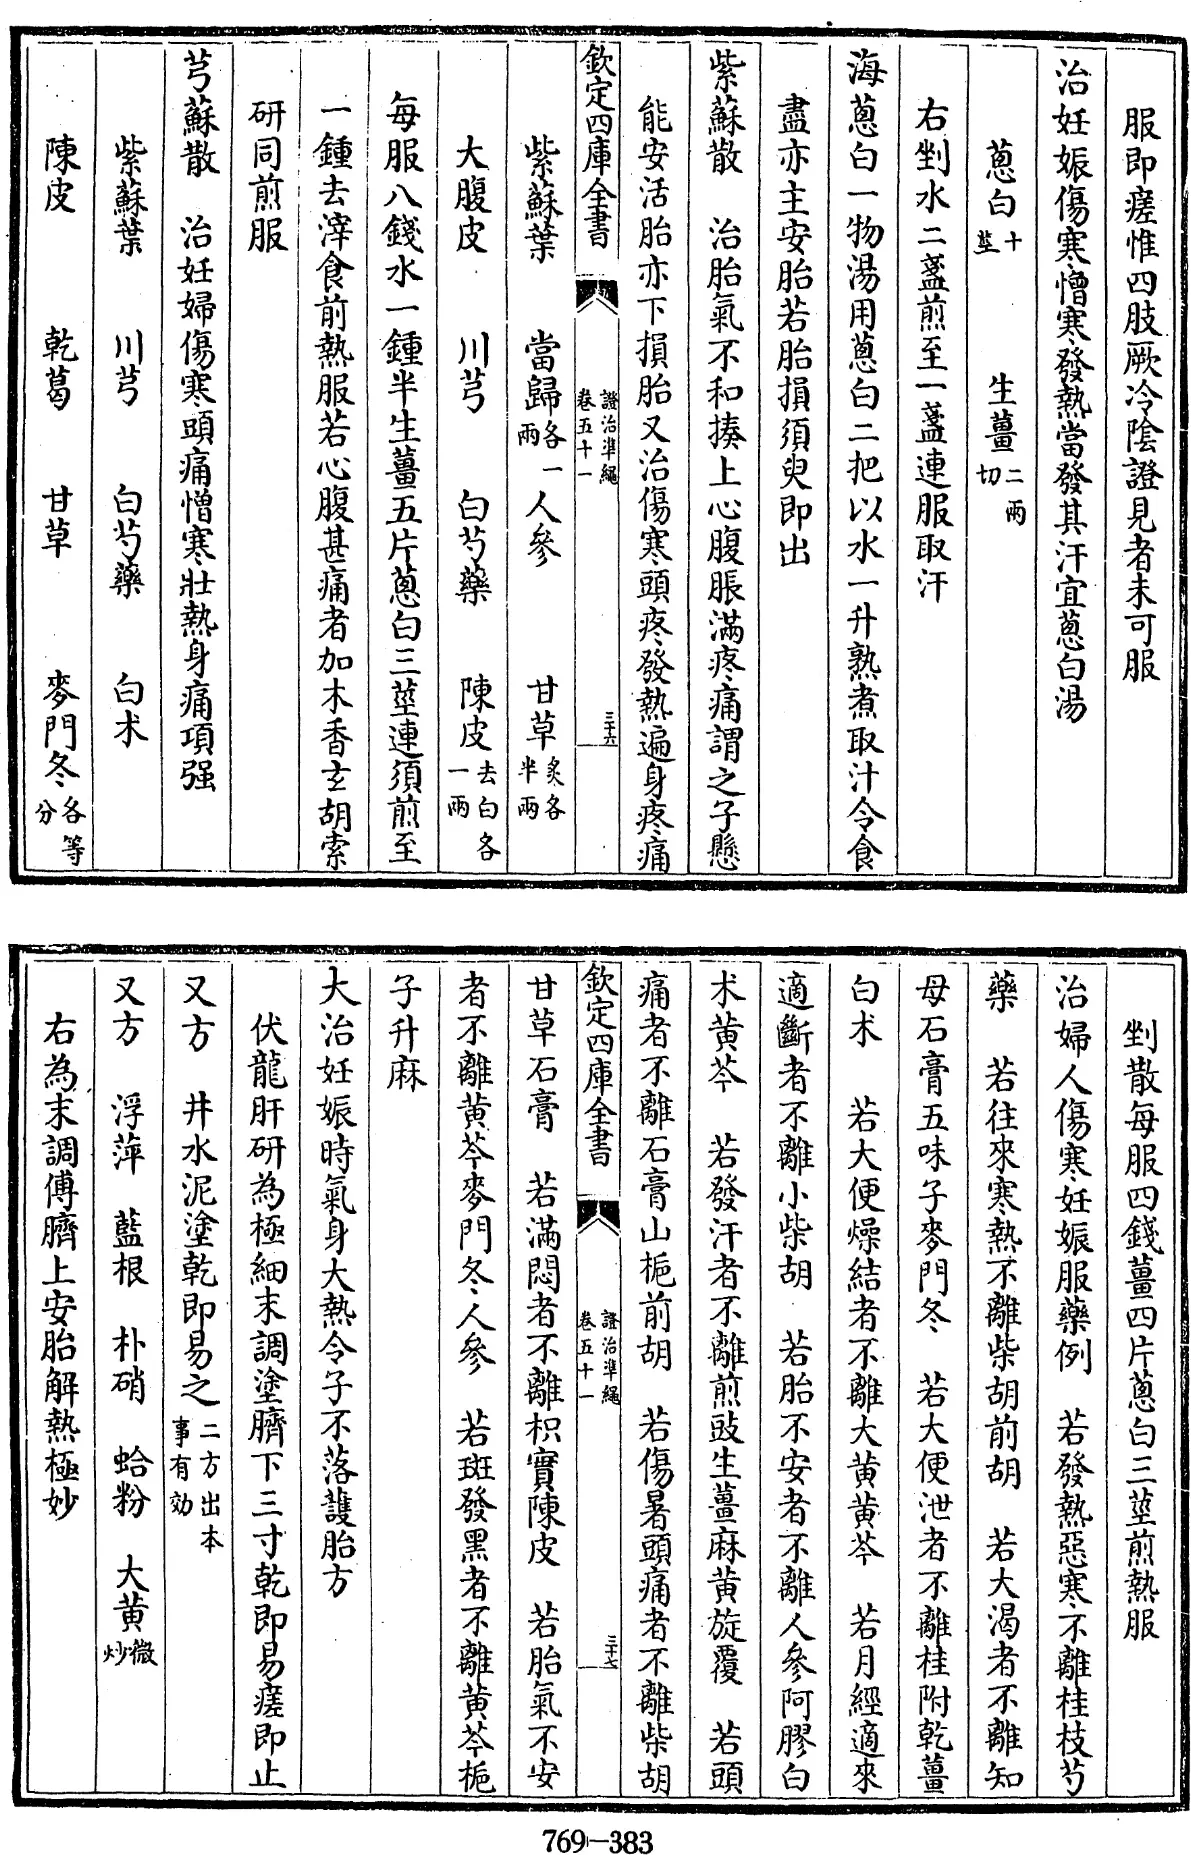 服即瘥惟四肢厥冷陰證見者未可服
治妊娠傷寒憎寒發熱當發其汗宜蔥白湯
蔥白十莖 生薑二兩切
右剉水二盞煎至一盞連服取汗
海蔥白一物湯用蔥白二把以水一升熟煮取汁令食
盡亦主安胎若胎損須臾即出
紫蘇散 治胎氣不和揍上心腹脹滿疼痛謂之子懸
能安活胎亦下損胎又治傷寒頭疼發熱遍身疼痛
欽定四庫全書 證治準繩卷五十一 三十六
紫蘇葉 當歸各一兩 人參 甘草炙各半兩
大腹皮 川芎 白芍藥 陳皮去白各一兩
每服八錢水一鍾半生薑五片蔥白三莖連須煎至
一鍾去滓食前熱服若心腹甚痛者加木香玄胡索
研同煎服
芎蘇散 治妊婦傷寒頭痛憎寒壯熱身痛項强
紫蘇葉 川芎 白芍藥 白朮
陳皮 乾葛 甘草 麥門冬各等分
剉散每服四錢薑四片蔥白三莖煎熱服
治婦人傷寒妊娠服藥例 若發熱惡寒不離桂枝芍
藥 若往來寒熱不離柴胡前胡 若大渴者不離知
母石膏五味子麥門冬 若大便泄者不離桂附乾薑
白朮 若大便燥結者不離大黃黃芩 若月經適來
適斷者不離小柴胡 若胎不安者不離人參阿膠白
朮黃芩 若發汗者不離煎豉生薑麻黃旋覆 若頭
痛者不離石膏山梔前胡 若傷暑頭痛者不離柴胡
欽定四庫全書 證治準繩卷五十一 三十七
甘草石膏 若滿悶者不離枳實陳皮 若胎氣不安
者不離黃芩麥門冬人參 若斑發黑者不離黃芩梔
子升麻
大治妊娠時氣身大熱令子不落護胎方
伏龍肝研為極細末調塗臍下三寸乾即易瘥即止
又方 井水泥塗乾即易之二方出本事有効
又方 浮萍 藍根 朴硝 蛤粉 大黃微炒
右為末調傅臍上安胎解熱極妙
769-383